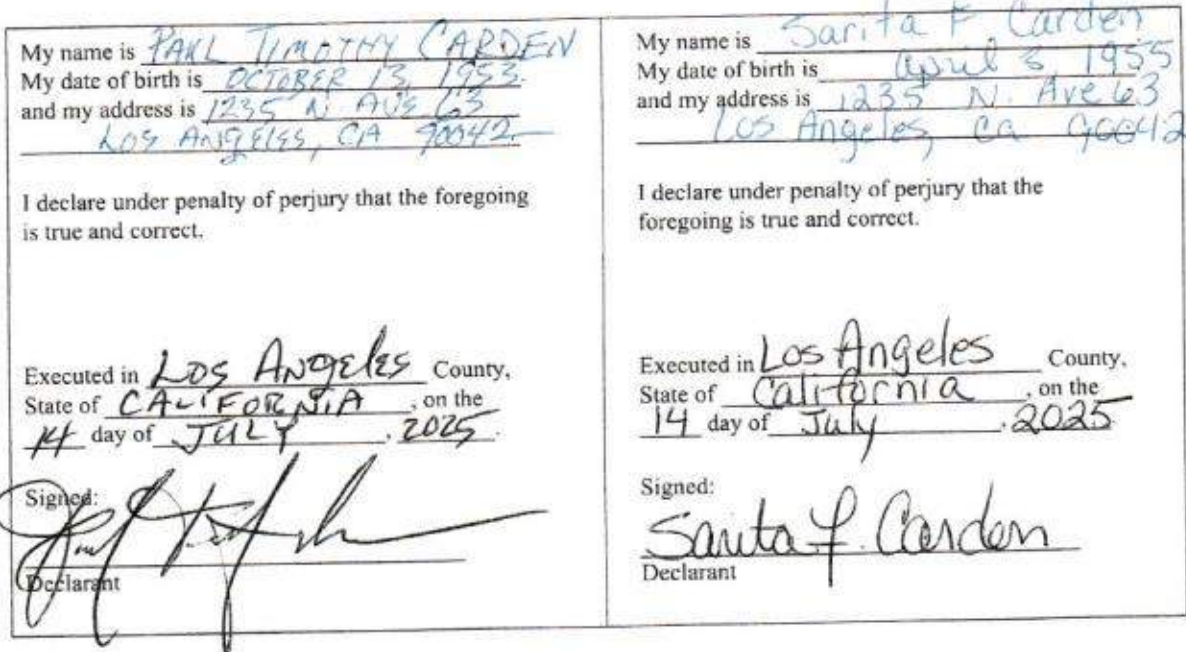 My name is PAUL TIMOTHY CARDEN
My date of birth is OCTOBER 13, 1953
and my address is 1235 N AVE 63
LOS ANGELES, CA 90042
I declare under penalty of perjury that the foregoing
is true and correct.
Executed in LOS ANGELES County,
State of CALIFORNIA, on the
14 day of JULY, 2025.
Signed:
Declarant
My name is Sarita F Carden
My date of birth is april 3, 1955
and my address is 1235 N. Ave 63
Los Angeles, ca 90042
I declare under penalty of perjury that the
foregoing is true and correct.
Executed in Los Angeles County,
State of California, on the
14 day of July, 2025
Signed:
Sarita F. Carden
Declarant